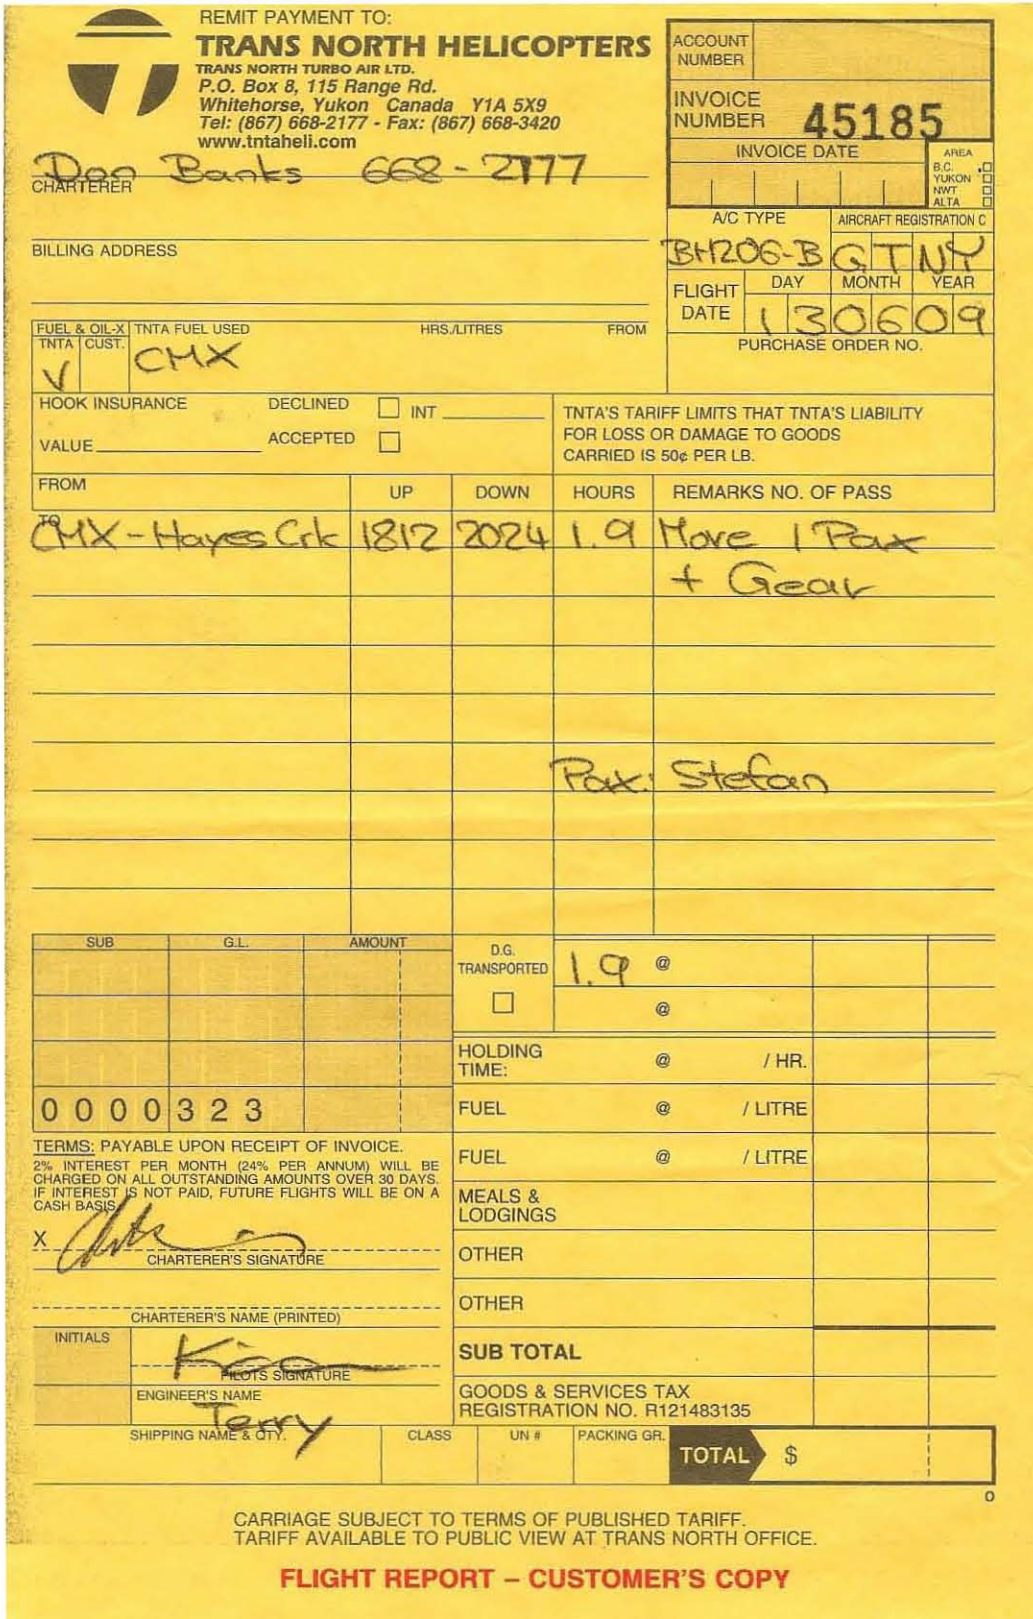 REMIT PAYMENT TO:
TRANS NORTH HELICOPTERS
TRANS NORTH TURBO AIR LTD.
P.O. Box 8, 115 Range Rd.
Whitehorse, Yukon Canada Y1A 5X9
Tel: (867) 668-2177 - Fax: (867) 668-3420
www.tntaheli.com
ACCOUNT NUMBER
INVOICE NUMBER 45185
INVOICE DATE
AREA
B.C.
YUKON
NWT
ALTA
Don Banks 668-2177
CHARTERER
BILLING ADDRESS
A/C TYPE AIRCRAFT REGISTRATION C
BH206-B GTNY
FLIGHT DATE DAY MONTH YEAR
130609
PURCHASE ORDER NO.
FUEL & OIL-X TNTA FUEL USED HRS./LITRES FROM
TNTA CUST.
V CMX
HOOK INSURANCE DECLINED INT
VALUE ACCEPTED
TNTA'S TARIFF LIMITS THAT TNTA'S LIABILITY
FOR LOSS OR DAMAGE TO GOODS
CARRIED IS 50¢ PER LB.
FROM UP DOWN HOURS REMARKS NO. OF PASS
TO
CMX - Hayes Crk 1812 2024 1.9 Move 1 Pax
+ Gear
Pax: Stefan
SUB G.L. AMOUNT
0000323
D.G. TRANSPORTED
1.9 @
@
HOLDING TIME: @ / HR.
FUEL @ / LITRE
FUEL @ / LITRE
MEALS & LODGINGS
OTHER
OTHER
SUB TOTAL
GOODS & SERVICES TAX
REGISTRATION NO. R121483135
TERMS: PAYABLE UPON RECEIPT OF INVOICE.
2% INTEREST PER MONTH (24% PER ANNUM) WILL BE
CHARGED ON ALL OUTSTANDING AMOUNTS OVER 30 DAYS.
IF INTEREST IS NOT PAID, FUTURE FLIGHTS WILL BE ON A
CASH BASIS.
X
CHARTERER'S SIGNATURE
CHARTERER'S NAME (PRINTED)
INITIALS
PILOTS SIGNATURE
ENGINEER'S NAME
Terry
SHIPPING NAME & QTY. CLASS UN # PACKING GR.
TOTAL $
0
CARRIAGE SUBJECT TO TERMS OF PUBLISHED TARIFF.
TARIFF AVAILABLE TO PUBLIC VIEW AT TRANS NORTH OFFICE.
FLIGHT REPORT – CUSTOMER'S COPY